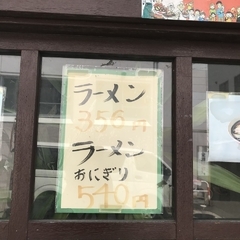 ラーメン
356円
ラーメン
おにぎり
540円